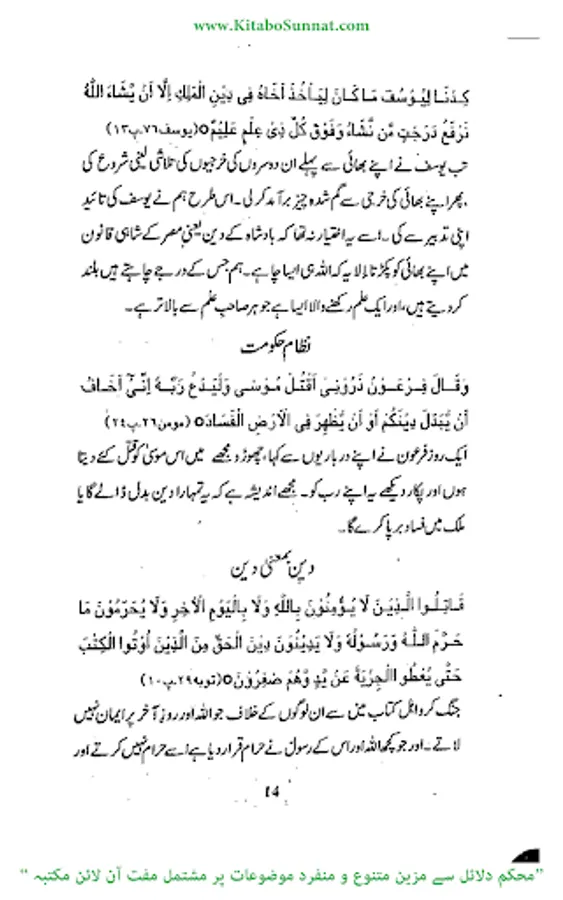 www.KitaboSunnat.com
كِدْنَا لِيُوْسُفَ مَا كَانَ لِيَأْخُذَ اَخَاهُ فِى دِيْنِ الْمَلِكِ اِلَّا اَنْ يَّشَآءَ اللّٰهُ
نَرْفَعُ دَرَجٰتٍ مَّنْ نَّشَآءُ وَفَوْقَ كُلِّ ذِىْ عِلْمٍ عَلِيْمٌ ٥ (یوسف ۷۶ پ ۱۳)
تب یوسف نے اپنے بھائی سے پہلے ان دوسروں کی خرجیوں کی تلاشی لینی شروع کی
پھر اپنے بھائی کی خرجی سے گم شدہ چیز برآمد کر لی۔ اس طرح ہم نے یوسف کی تائید
اپنی تدبیر سے کی۔ اسے یہ اختیار نہ تھا کہ بادشاہ کے دین یعنی مصر کے شاہی قانون
میں اپنے بھائی کو پکڑتا اِلا یہ کہ اللہ ہی ایسا چاہے۔ ہم جس کے درجے چاہتے ہیں بلند
کر دیتے ہیں، اور ایک علم رکھنے والا ایسا ہے جو ہر صاحبِ علم سے بالاتر ہے۔
نظام حکومت
وَقَالَ فِرْعَوْنُ ذَرُوْنِىْ اَقْتُلْ مُوْسٰى وَلْيَدْعُ رَبَّهٗ اِنِّىْٓ اَخَافُ
اَنْ يُّبَدِّلَ دِيْنَكُمْ اَوْ اَنْ يُّظْهِرَ فِى الْاَرْضِ الْفَسَادَ ٥ (مومن ۲۶ پ ۲۴)
ایک روز فرعون نے اپنے درباریوں سے کہا، چھوڑو مجھے میں اس موسیٰ کو قتل کئے دیتا
ہوں اور پکار دیکھے یہ اپنے رب کو۔ مجھے اندیشہ ہے کہ یہ تمہارا دین بدل ڈالے گا یا
ملک میں فساد برپا کرے گا۔
دین بمعنیٰ دین
قَاتِلُوا الَّذِيْنَ لَا يُؤْمِنُوْنَ بِاللّٰهِ وَلَا بِالْيَوْمِ الْاٰخِرِ وَلَا يُحَرِّمُوْنَ مَا
حَرَّمَ اللّٰهُ وَرَسُوْلُهٗ وَلَا يَدِيْنُوْنَ دِيْنَ الْحَقِّ مِنَ الَّذِيْنَ اُوْتُوا الْكِتٰبَ
حَتّٰى يُعْطُوا الْجِزْيَةَ عَنْ يَّدٍ وَّهُمْ صٰغِرُوْنَ ٥ (توبہ ۲۹ پ ۱۰)
جنگ کرو اہل کتاب میں سے ان لوگوں کے خلاف جو اللہ اور روزِ آخر پر ایمان نہیں
لاتے۔ اور جو کچھ اللہ اور اس کے رسول نے حرام قرار دیا ہے اسے حرام نہیں کرتے اور
14
"محکم دلائل سے مزین متنوع و منفرد موضوعات پر مشتمل مفت آن لائن مکتبہ"